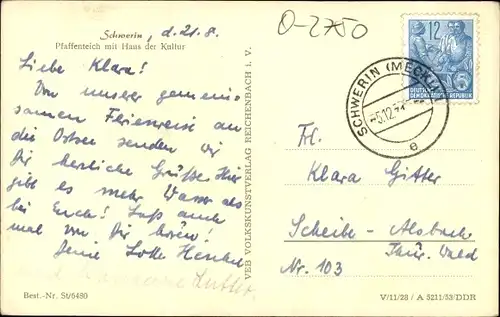 Schwerin, d. 21. 8.
Pfaffenteich mit Haus der Kultur
O-2750
Liebe Klara!
Von unserer gemein-
samen Ferienreise an
die Ostsee senden wir
Dir herzliche Grüße. Hier
gibt es mehr Wasser als
bei Euch! Laß auch
mal von Dir hören!
Deine Lotte
Best.-Nr. St/6480
VEB VOLKSKUNSTVERLAG REICHENBACH i. V.
12
DEUTSCHE
DEMOKRATISCHE REPUBLIK
SCHWERIN (MECKL)
-5.12
e
Frl.
Klara Gitter
Scheibe-Alsbach
Thür. Wald
Nr. 103
V/11/28 / A 5211/53/DDR